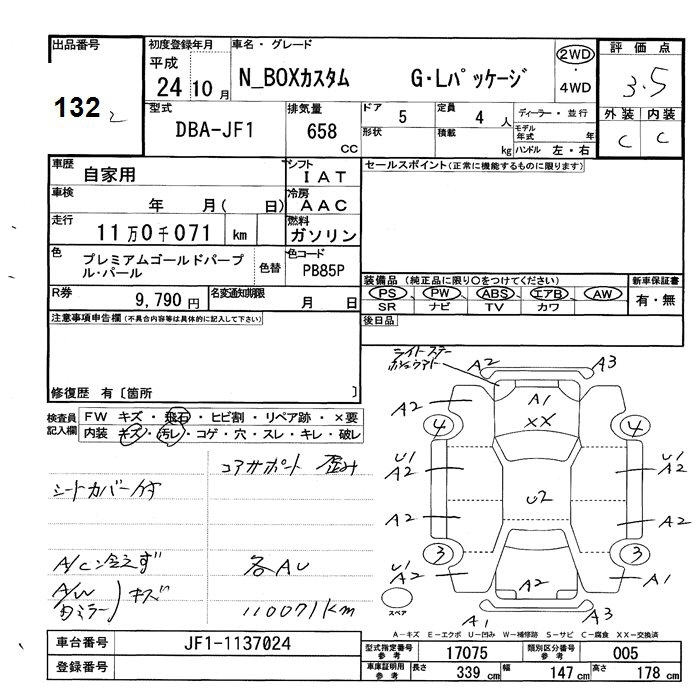 出品番号
132 2
初度登録年月
平成
24 10月
車名・グレード
N_BOXカスタム G・Lパッケージ
2WD
・
4WD
評価点
3.5
外装 内装
C C
型式
DBA-JF1
排気量
658
CC
ドア
5
定員
4 人
ディーラー・並行
形状
積載
kg
モデル年式 年
ハンドル 左・右
車歴
自家用
シフト
IAT
車検
年 月( 日)
冷房
AAC
走行
11万0千071 km
燃料
ガソリン
色
プレミアムゴールドパープ
ル・パール
色替
色コード
PB85P
R券
9,790 円
名変通知期限
月 日
セールスポイント(正常に機能するものに限ります)
装備品 (純正品に限り○をつけてください)
PS PW ABS エアB AW
SR ナビ TV カワ
新車保証書
有・無
後日品
注意事項申告欄(不具合内容等は具体的に記入して下さい)
修復歴 有〔箇所 〕
検査員
記入欄
FW キズ・飛石・ヒビ割・リペア跡・×要
内装 キズ・汚レ・コゲ・穴・スレ・キレ・破レ
コアサポート 歪み
シートカバー付
A/C冷えず
各AU
A/W
内ミラー
キズ
110071km
ライトステー
A2 A3
A2 A1
XX
4 4
U1 U1
A2 A2
U2
A2 A2
3 3
U1
A2 A2 A1
A1 A3
スペア
A−キズ E−エクボ U−凹み W−補修跡 S−サビ C−腐食 XX−交換済
車台番号
JF1-1137024
登録番号
型式指定番号
参考
17075
類別区分番号
参考
005
車庫証明用
参考
長さ 339 cm 幅 147 cm 高さ 178 cm